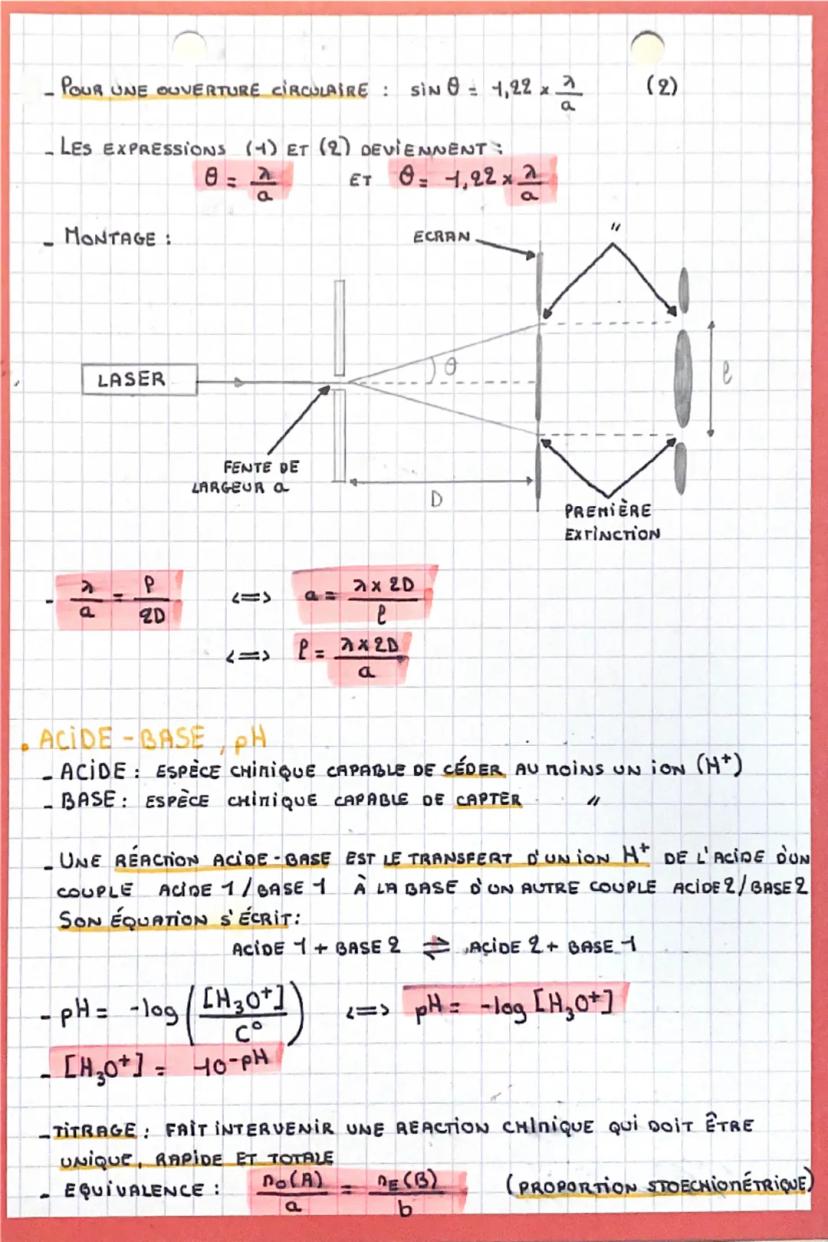 - POUR UNE OUVERTURE CIRCULAIRE : sin θ = 1,22 x λ/a (2)
- LES EXPRESSIONS (1) ET (2) DEVIENNENT :
θ = λ/a ET θ = 1,22 x λ/a
- MONTAGE :
ECRAN
"
LASER
θ
ℓ
FENTE DE
LARGEUR a
D
PREMIÈRE
EXTINCTION
- λ/a = ℓ/2D <=> a = λ x 2D/ℓ
<=> ℓ = λ x 2D/a
• ACIDE - BASE, pH
- ACIDE : ESPÈCE CHIMIQUE CAPABLE DE CÉDER AU MOINS UN ION (H⁺)
- BASE : ESPÈCE CHIMIQUE CAPABLE DE CAPTER "
- UNE RÉACTION ACIDE-BASE EST LE TRANSFERT D'UN ION H⁺ DE L'ACIDE D'UN
COUPLE ACIDE 1 / BASE 1 À LA BASE D'UN AUTRE COUPLE ACIDE 2 / BASE 2
SON ÉQUATION S'ÉCRIT :
ACIDE 1 + BASE 2 ⇌ ACIDE 2 + BASE 1
- pH = -log ([H₃O⁺]/C°) <=> pH = -log [H₃O⁺]
- [H₃O⁺] = 10^-pH
- TITRAGE : FAIT INTERVENIR UNE REACTION CHIMIQUE QUI DOIT ÊTRE
UNIQUE, RAPIDE ET TOTALE
- EQUIVALENCE : n₀(A)/a = nE(B)/b (PROPORTION STOECHIOMÉTRIQUE)